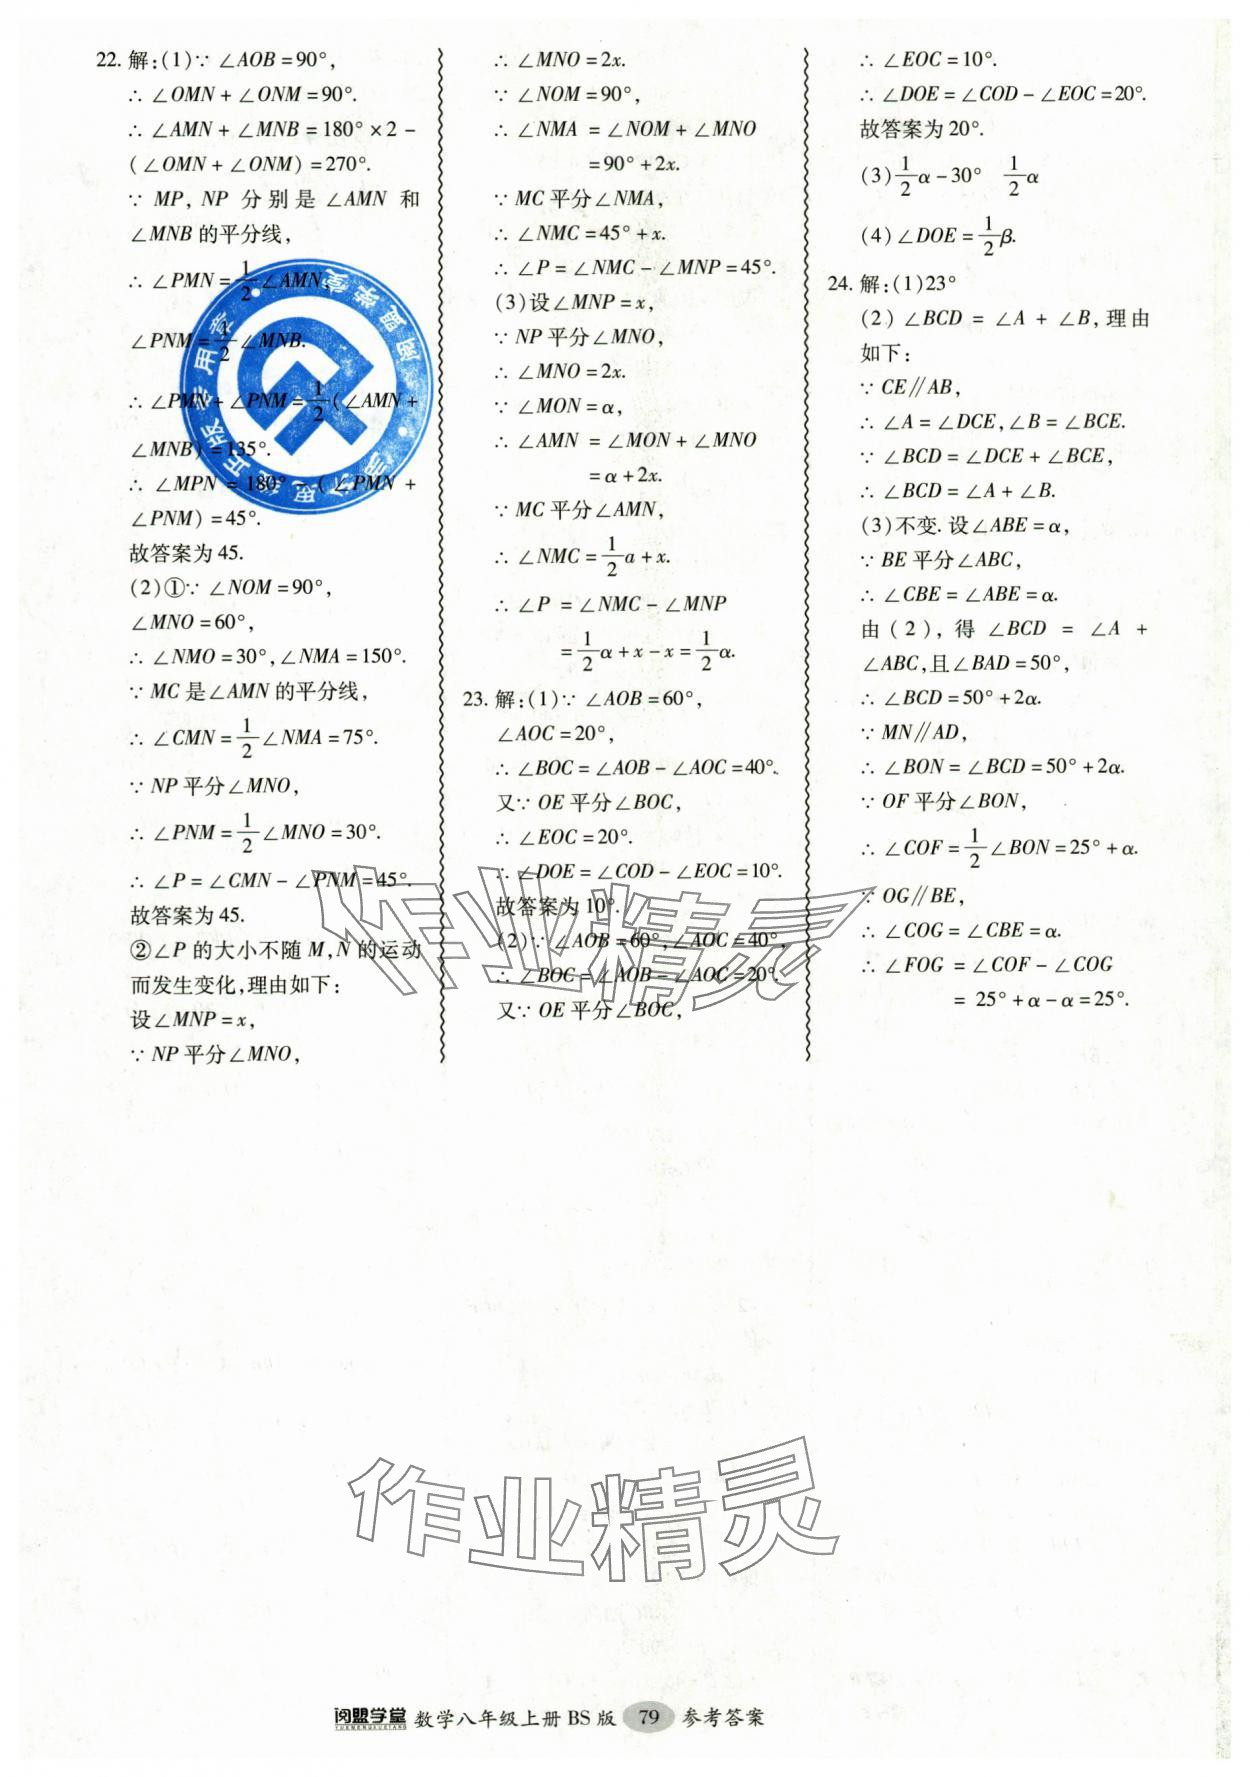 22. 解:(1)∵ ∠AOB=90°,
∴ ∠OMN+∠ONM=90°.
∴ ∠AMN+∠MNB=180°×2-
(∠OMN+∠ONM)=270°.
∵ MP, NP 分别是∠AMN 和
∠MNB 的平分线,
∴ ∠PMN=1/2∠AMN,
∠PNM=1/2∠MNB.
∴ ∠PMN+∠PNM=1/2(∠AMN+
∠MNB)=135°.
∴ ∠MPN=180°-(∠PMN+
∠PNM)=45°.
故答案为 45.
(2)①∵ ∠NOM=90°,
∠MNO=60°,
∴ ∠NMO=30°,∠NMA=150°.
∵ MC 是∠AMN 的平分线,
∴ ∠CMN=1/2∠NMA=75°.
∵ NP 平分∠MNO,
∴ ∠PNM=1/2∠MNO=30°.
∴ ∠P=∠CMN-∠PNM=45°.
故答案为 45.
②∠P 的大小不随 M,N 的运动
而发生变化,理由如下:
设∠MNP=x,
∵ NP 平分∠MNO,
∴ ∠MNO=2x.
∵ ∠NOM=90°,
∴ ∠NMA =∠NOM+∠MNO
=90°+2x.
∵ MC 平分∠NMA,
∴ ∠NMC=45°+x.
∴ ∠P=∠NMC-∠MNP=45°.
(3)设∠MNP=x,
∵ NP 平分∠MNO,
∴ ∠MNO=2x.
∵ ∠MON=α,
∴ ∠AMN =∠MON+∠MNO
=α+2x.
∵ MC 平分∠AMN,
∴ ∠NMC=1/2a+x.
∴ ∠P =∠NMC-∠MNP
=1/2α+x-x=1/2α.
23. 解:(1)∵ ∠AOB=60°,
∠AOC=20°,
∴ ∠BOC=∠AOB-∠AOC=40°.
又∵ OE 平分∠BOC,
∴ ∠EOC=20°.
∴ ∠DOE=∠COD-∠EOC=10°.
故答案为 10°.
(2)∵ ∠AOB=60°,∠AOC=40°,
∴ ∠BOC=∠AOB-∠AOC=20°.
又∵ OE 平分∠BOC,
∴ ∠EOC=10°.
∴ ∠DOE=∠COD-∠EOC=20°.
故答案为 20°.
(3)1/2α-30° 1/2α
(4)∠DOE=1/2β.
24. 解:(1)23°
(2)∠BCD = ∠A + ∠B,理由
如下:
∵ CE∥AB,
∴ ∠A=∠DCE,∠B=∠BCE.
∵ ∠BCD=∠DCE+∠BCE,
∴ ∠BCD=∠A+∠B.
(3)不变.设∠ABE=α,
∵ BE 平分∠ABC,
∴ ∠CBE=∠ABE=α.
由(2),得∠BCD = ∠A +
∠ABC,且∠BAD=50°,
∴ ∠BCD=50°+2α.
∵ MN∥AD,
∴ ∠BON=∠BCD=50°+2α.
∵ OF 平分∠BON,
∴ ∠COF=1/2∠BON=25°+α.
∵ OG∥BE,
∴ ∠COG=∠CBE=α.
∴ ∠FOG =∠COF-∠COG
= 25°+α-α=25°.
作业精灵
作业精灵
阅盟学堂 数学八年级上册 BS 版 79 参考答案
YUEMENGXUETANG